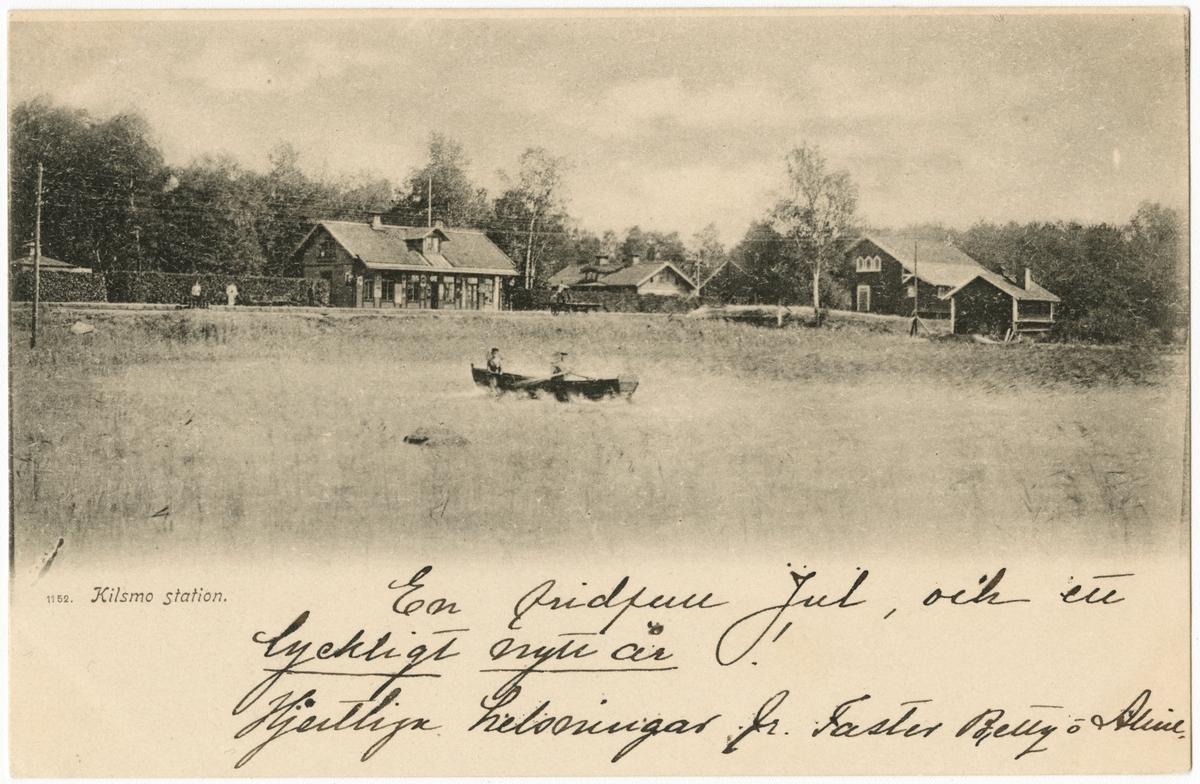 1152. Kilsmo station.
En fridfull Jul, och ett
lyckligt nytt år!
Hjertliga helsningar fr. Faster Betty o Aline.